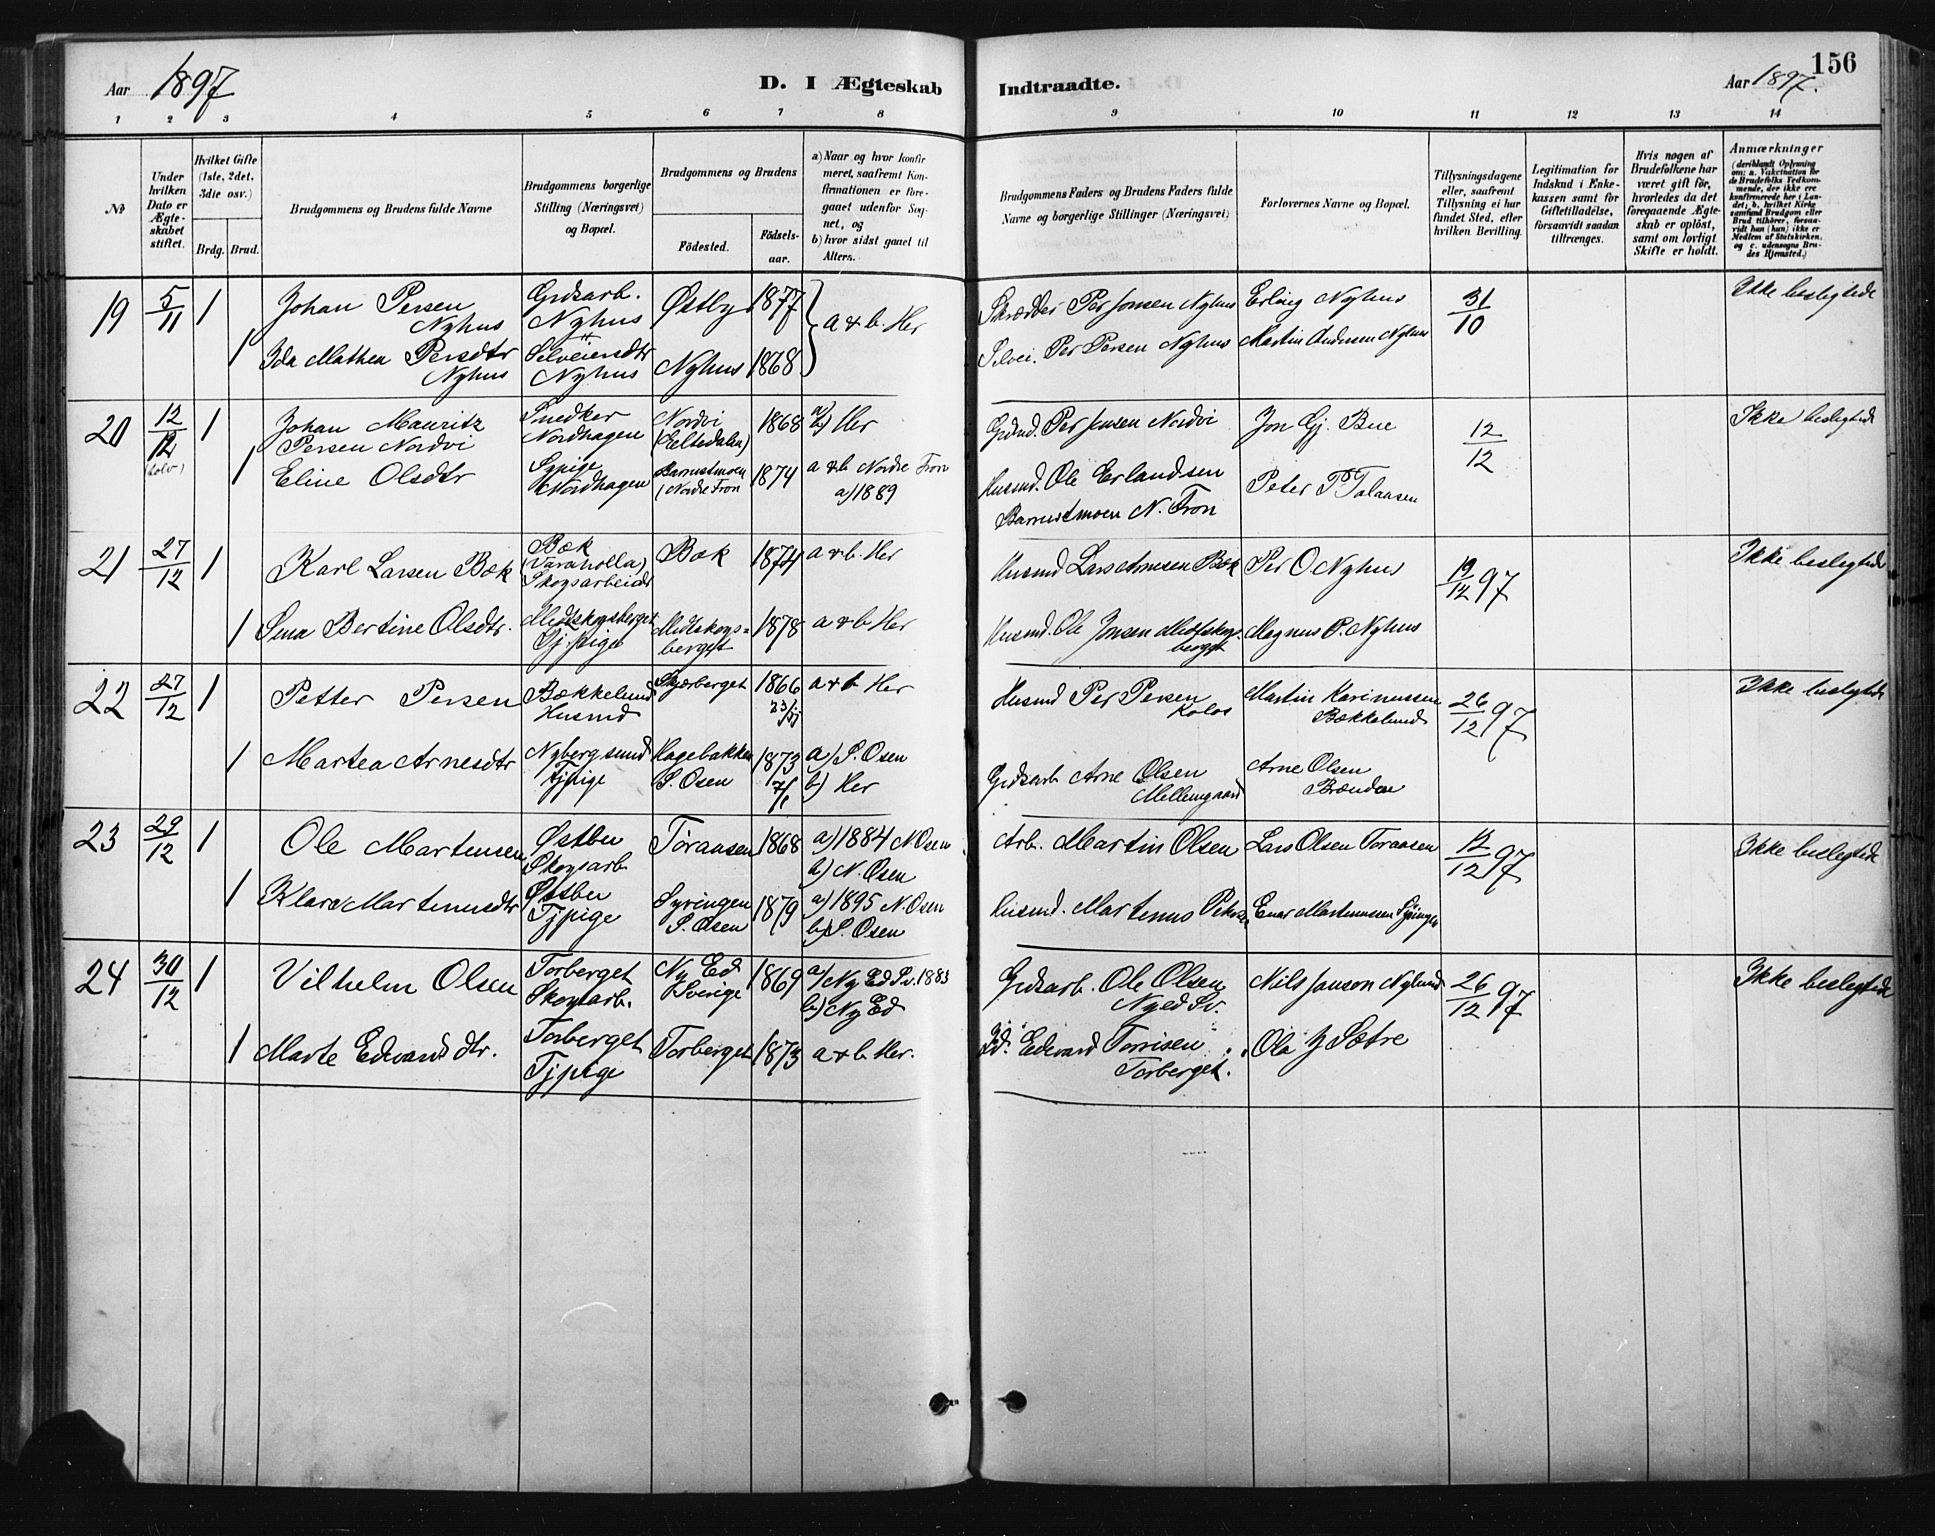 156
Aar 1897
D. I Ægteskab
Indtraadte.
Aar 1897.
1 2 3 4 5 6 7 8
9 10 11 12 13 14
№
Under hvilken Dato er Ægteskabet stiftet.
Hvilket Gifte (1ste, 2det, 3die osv.)
Brdg. Brud.
Brudgommens og Brudens fulde Navne
Brudgommens borgerlige Stilling (Næringsvei) og Bopæl.
Brudgommens og Brudens
Fødested.
Fødselsaar.
a) Naar og hvor konfirmeret, saafremt Konfirmationen er foregaaet udenfor Sognet, og
b) hvor sidst gaaet til Alters.
Brudgommens Faders og Brudens Faders fulde Navne og borgerlige Stillinger (Næringsvei)
Forlovernes Navne og Bopæl.
Tillysningsdagene eller, saafremt Tillysning ei har fundet Sted, efter hvilken Bevilling.
Legitimation for Indskud i Enkekassen samt for Giftetilladelse, forsaavidt saadan tiltrænges.
Hvis nogen af Brudefolkene har været gift før, hvorledes da det foregaaende Ægteskab er opløst, samt om lovligt Skifte er holdt.
Anmærkninger
19 5/11 1 Johan Persen Nyhus Grdsarb. Nyhus Østby 1877 a & b. Her
Skrædder Per Jonsen Nyhus Erling Nyhus 31/10 Ikke beslegtede
1 Ida Mathea Persdtr Nyhus Selveiersdtr Nyhus Nyhus 1868
Selvei. Per Persen Nyhus Martin Andersen Nyhus
20 12/12 (tolv) 1 Johan Mauritz Persen Nordvi Snedker Nordhagen Nordvi (Eltedalen) 1868 a/b) Her
Grdmd. Per Jensen Nordvi Jon Gj. Bue 12/12 Ikke beslegtede
1 Eline Olsdtr Sypige Nordhagen Barmstmoen (Nordre Fron 1874 a & b Nordre Fron a) 1889
Husmd. Ole Erlandsen Barmstmoen N. Fron Peter P
21 27/12 1 Karl Larsen Bæk Bæk (Varaholla) Skogsarbeider Bæk 1874 a & b. Her
Husmd Lars Arnesen Bæk Per O Nyhus 19/12 97 Ikke beslegtede
1 Sina Bertine Olsdtr. Midtskogsberget Gj. pige Midtskogsberget 1878 a & b Her
Husmd. Ole Jonsen Midtskogberget Magnus P. Nyhus
22 27/12 1 Petter Persen Bækkelund Husmd Skjærberget 1866 a & b Her
Husmd Per Persen Kolos Martin Karinussen Bækkelund 26/12 97 Ikke beslegtede
1 Martea Arnesdtr Nybergsund Tjpige Hagebakken S. Osen 1873 a) S. Osen b) Her
Grdsarb Arne Olsen Mellemgaard Arne Olsen Brænden
23 29/12 1 Ole Martensen Østbu Skogsarb Tøraasen 1868 a) 1884 N Osen b) N. Osen
Arb. Martin Olsen Lars Olsen Tøraasen 12/12 97 Ikke beslegtede
1 Klara Martinusdtr Østbu Tjpige Syringen S. Osen 1879 a) 1895 N. Osen b) S. Osen
Husmd. Martenus Peters. Enar Martenussen Syringen
24 30/12 1 Vilhelm Olsen Torberget Skogsarb. Ny Ed Sverige 1869 a) Ny Ed Sv. 1883 b) Ny Ed
Grdsarb. Ole Olsen Nyed Sv. Nils Janson Nylund 26/12 97 Ikke beslegtede
1 Marte Edvardsdtr. Torberget Tjpige Torberget 1873 a & b Her.
Edevard Torrisen Torberget. Ola J Sætre